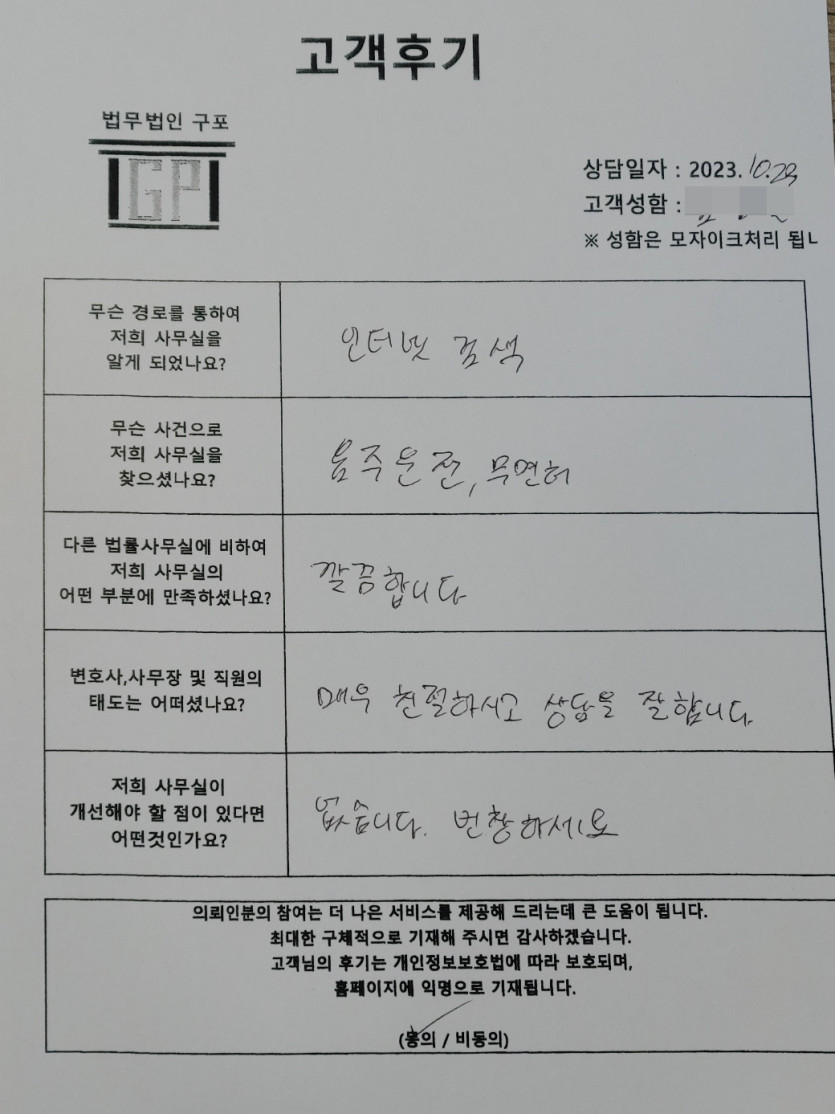 고객후기
법무법인 구포
GP
상담일자 : 2023. 10.23
고객성함 :
※ 성함은 모자이크처리 됩ㄴ
무슨 경로를 통하여
저희 사무실을
알게 되었나요?
인터넷 검색
무슨 사건으로
저희 사무실을
찾으셨나요?
음주운전, 무면허
다른 법률사무실에 비하여
저희 사무실의
어떤 부분에 만족하셨나요?
깔끔합니다
변호사,사무장 및 직원의
태도는 어떠셨나요?
매우 친절하시고 상담을 잘합니다
저희 사무실이
개선해야 할 점이 있다면
어떤것인가요?
없습니다. 번창하세요
의뢰인분의 참여는 더 나은 서비스를 제공해 드리는데 큰 도움이 됩니다.
최대한 구체적으로 기재해 주시면 감사하겠습니다.
고객님의 후기는 개인정보보호법에 따라 보호되며,
홈페이지에 익명으로 기재됩니다.
(동의 / 비동의)